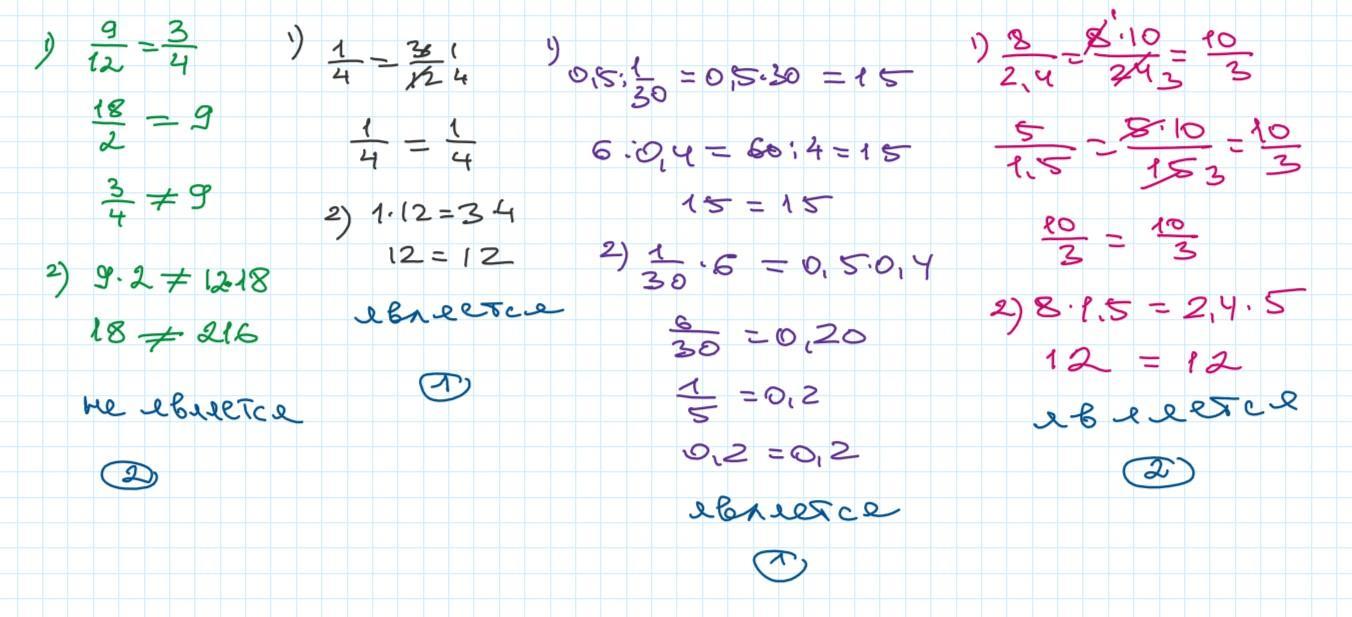 1) 9/12 = 3/4
18/2 = 9
3/4 ≠ 9
2) 9·2 ≠ 12·18
18 ≠ 216
не является
2
1) 1/4 = 3 1/12 4
1/4 = 1/4
2) 1·12 = 3·4
12 = 12
является
1
1) 0,5 : 1/30 = 0,5·30 = 15
6 : 0,4 = 60 : 4 = 15
15 = 15
2) 1/30 · 6 = 0,5·0,4
6/30 = 0,20
1/5 = 0,2
0,2 = 0,2
является
1
1) 8/2,4 = 8 1·10/24 3 = 10/3
5/1,5 = 5·10/15 3 = 10/3
10/3 = 10/3
2) 8·1,5 = 2,4·5
12 = 12
является
2